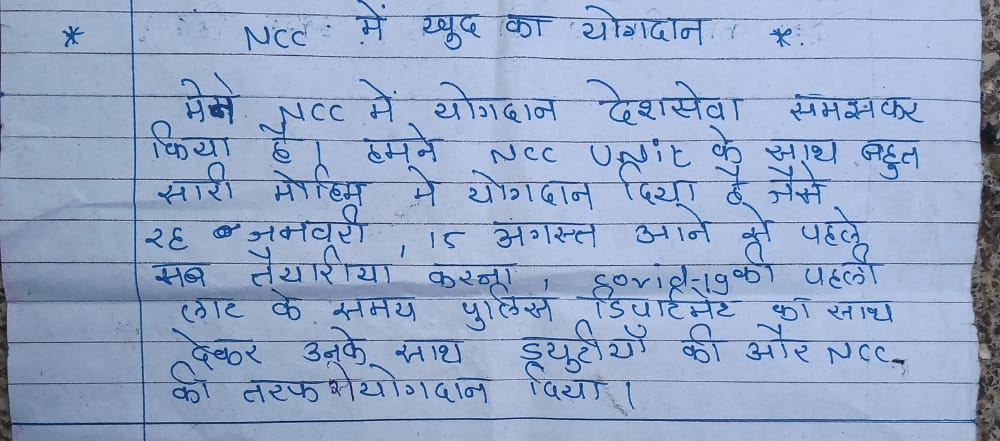 * NCC में खुद का योगदान *
मेने NCC में योगदान देशसेवा समझकर
किया है। हमने NCC Unit के साथ बहुत
सारी मोहिम मे योगदान दिया है जैसे
२६ जनवरी, 15 अगस्त आने से पहले
सब तैयारीया करना, covid-19की पहली
लाट के समय पुलिस डिपार्टमेंट का साथ
देकर उनके साथ ड्युटीयाँ की और NCC
की तरफ सेयोगदान दिया।